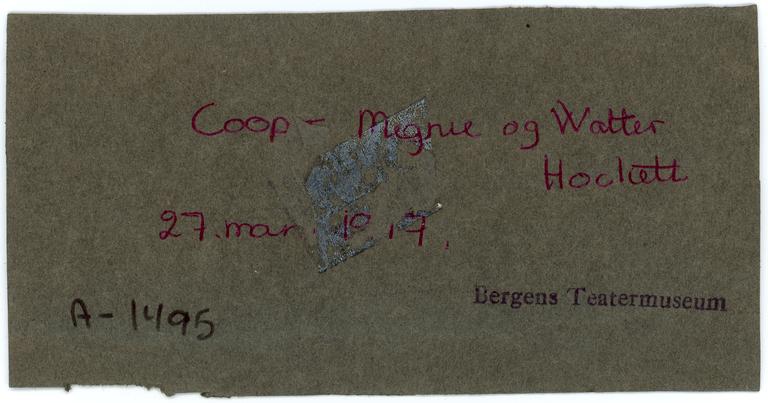 Coop - Megrue og Walter
Hackett
27. mar. 1917.
Bergens Teatermuseum
A-1495